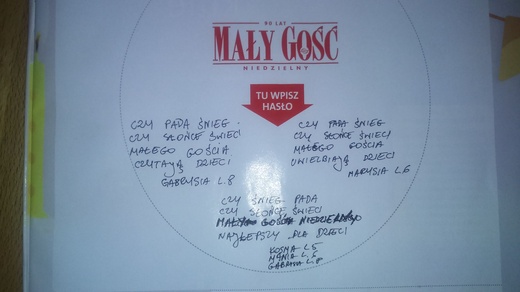 90 LAT
MAŁY GOŚĆ
NIEDZIELNY
TU WPISZ
HASŁO
CZY PADA ŚNIEG
CZY SŁOŃCE ŚWIECI
MAŁEGO GOŚCIA
CZYTAJĄ DZIECI
GABRYSIA L.8
CZY PADA ŚNIEG
CZY SŁOŃCE ŚWIECI
MAŁEGO GOŚCIA
UWIELBIAJĄ DZIECI
MARYSIA L.6
CZY ŚNIEG PADA
CZY SŁOŃCE ŚWIECI
NAJLEPSZY DLA DZIECI
KOSMA L.5
GABRYSIA L.8